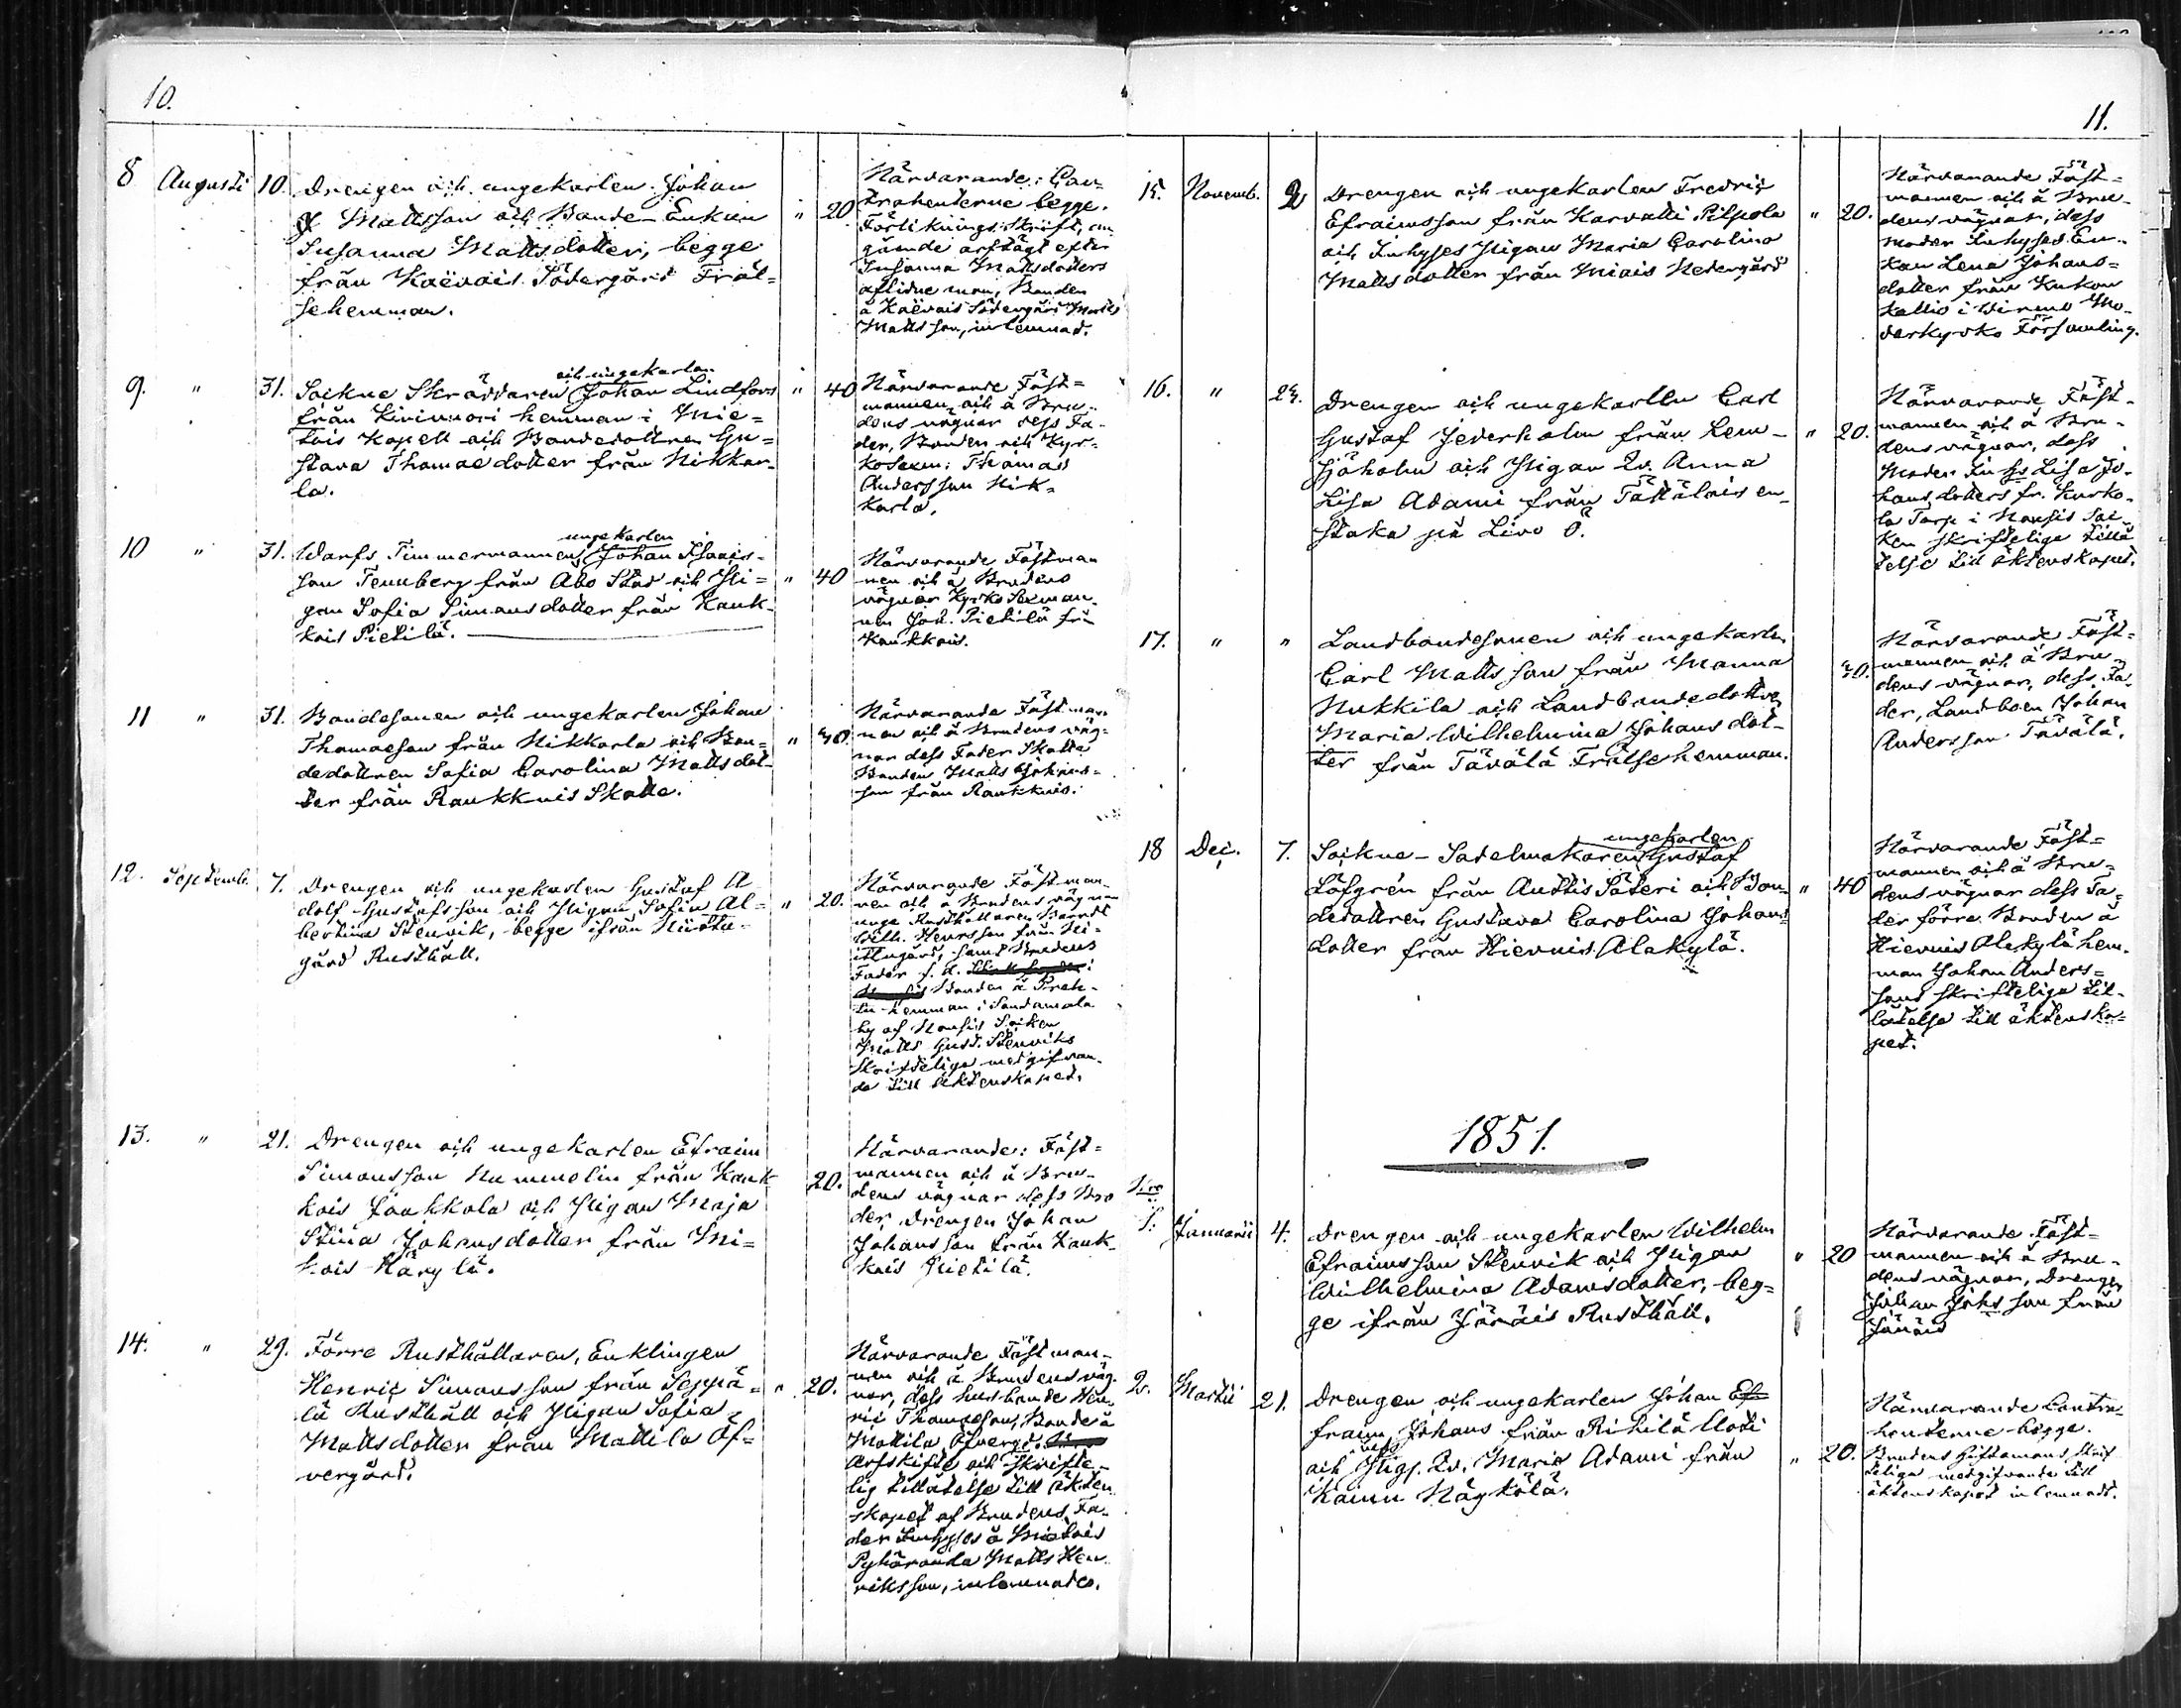 10.
8 Augusti 10. Drengen och ungekarlen Johan
Mattsson och Bonde-Enkan " 20
Susanna Mattsdotter, begge
från Kaëvois Södergård Fräl=
sehemman.
Närvarande: Con=
trahenterne begge.
Förlikningsskrift, an
gående arfsägt efter
Susanna Mattsdotters
aflidne man, Bonden
å Kaëvois Södergård Matts
Mattsson, inlemnad.
9. " 31. Sockne Skräddaren och ungekarlen Johan Lindfors " 40
från Kirivuori hemman i Mie=
tois Kapell och Bondedottren Gu=
stava Thomaedotter från Nikkar-
la.
Närvarande Fäst=
mannen och å Bru-
dens vägnar dess Fa-
der, Bonden och Kyr-
kosexm: Thomas
Andersson Nik-
karla.
10 " 31. Warfs Timmermannen ungekarlen Johan Isaacs-
son Tennberg från Åbo Stad och Pi= " 40
gan Sofia Simonsdotter från Kauk-
kois Pietilä.
Närvarande Fästman
nen och å Brudens
vägnar Kyrko Sexman-
nen Joh. Pietilä från
Kaukkois.
11 " 31. Bondesonen och ungekarlen Johan
Thomaeson från Nikkarla och Bon= " 40.
dedottren Sofia Carolina Mattsdot-
ter från Raukkuis Skatte.
Närvarande Fästman
nen och å Brudens väg=
nar dess Fader Skatte
Bonden Matts Johans-
son från Raukkuis.
12. Septemb. 7. Drengen och ungekarlen Gustaf A
dolf Gustafsson och Pigan Sofia Al= " 20.
bertina Stenvik, begge ifrån
gård Rusthåll.
Närvarande Fästman-
nen och å Brudens vägnar
unge Rusthållaren Berndt
Wilh. Henrsson från
gård, samt Brudens
Fader f. d.
Bonden å
hemman i Sandamala
by af Nousis Socken
Matts Gust. Stenviks
Skriftelige medgifvan-
de till äktenskapet.
13. " 21. Drengen och ungekarlen Efraim
Simonsson Nummelin från Kauk 20.
kois Jaakkola och Pigan Maja
Stina Johansdotter från Mi=
kois Kärylä.
Närvarande: Fäst=
mannen och å Bru-
dens vägnar dess Bro
der drengen Johan
Johansson från Kauk-
kois Pietilä.
14. " 29. Förre Rusthållaren, Enklingen
Henric Simonsson från Seppä= " 20.
lä Rusthåll och Pigan Sofia
Mattsdotter från Mattila Öf=
vergård.
Närvarande Fästman-
nen och å Brudens väg-
nar, dess husbonde Hen-
ric Thomaeson, Bonde å
Mattila Öfvergd.
Arfskifte och Skrifte-
lig tillåtelse till äkten
skapet af Brudens Fa-
der Inhyses å Mietois
Pyhäranda Matts Hen-
riksson, inlemnades.
11.
15. Novemb. 2 Drengen och ungekarlen Fredric
Efraimsson från Karvatti Pilpola " 20.
och Inhyses Pigan Maria Carolina
Mattsdotter från Miais Nedergård
Närvarande Fäst=
mannen och å Bru-
dens vägnar, dess
moder Inhyses En-
kan Lena Johans=
dotter från
kallio i Wirmo Mo-
derkyrko Församling.
16. " 24. Drengen och ungekarlen Carl
Gustaf Jederholm från Lem- " 20.
sjöholm och Pigan Anna
Lisa Adami från Tättälois en-
staka på Livo Ö.
Närvarande Fäst-
mannen och å Bru-
dens vägnar, dess
Moder Lisa Jo-
hansdotters fr. Kurko-
la Torp i Nousis Soc-
ken skriftelige tillå
telse till äktenskapet.
17. " " Landbondesonen och ungekarlen
Carl Mattsson från Manna 40.
Nukkila och Landbondedottren
Maria Wilhelmina Johansdot-
ter från Tävälä Frälsehemman.
Närvarande Fäst=
mannen och å Bru-
dens vägnar, dess Fa-
der, Landboen Johan
Andersson Tävälä.
18 Dec. 7. Sockne-Sadelmakaren ungekarlen Gustaf
Löfgrén från Auttis Säteri och Bon= " 40
dedottren Gustava Carolina Johans
dotter från Hiervois Alakylä.
Närvarande Fäst=
mannen och å Bru-
dens vägnar dess Fa-
der förre Bonden å
Hiervois Alakylä hem-
man Johan Anders=
sons skriftelige til-
låtelse till äktenska-
pet.
1851.
N:ro
1. Januarii 4. Drengen och ungekarlen Wilhelm
Efraimsson Stenvik och Pigan " 20
Wilhelmina Adamsdotter, beg=
ge ifrån Järäis Rusthåll.
Närvarande Fäst=
mannen och å Bru-
dens vägnar, Drengen
Johan Johsson från
Järäis
2. Martii 21. Drengen och ungekarlen Johan Ef
fraim Johans från Rihilä Uoti
och Maria Adami från " 20.
Kaimu Näykölä.
Närvarande Contra-
henterne begge.
Brudens Giftomans skrif
teliga medgifvande till
äktenskapet inlemnadt.